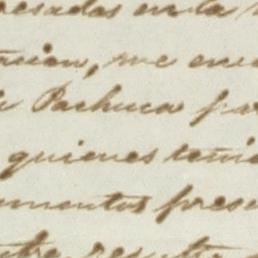 resadas en la
acion, me en
de Pachuca par
quienes teni
umentos prese
entre resulta